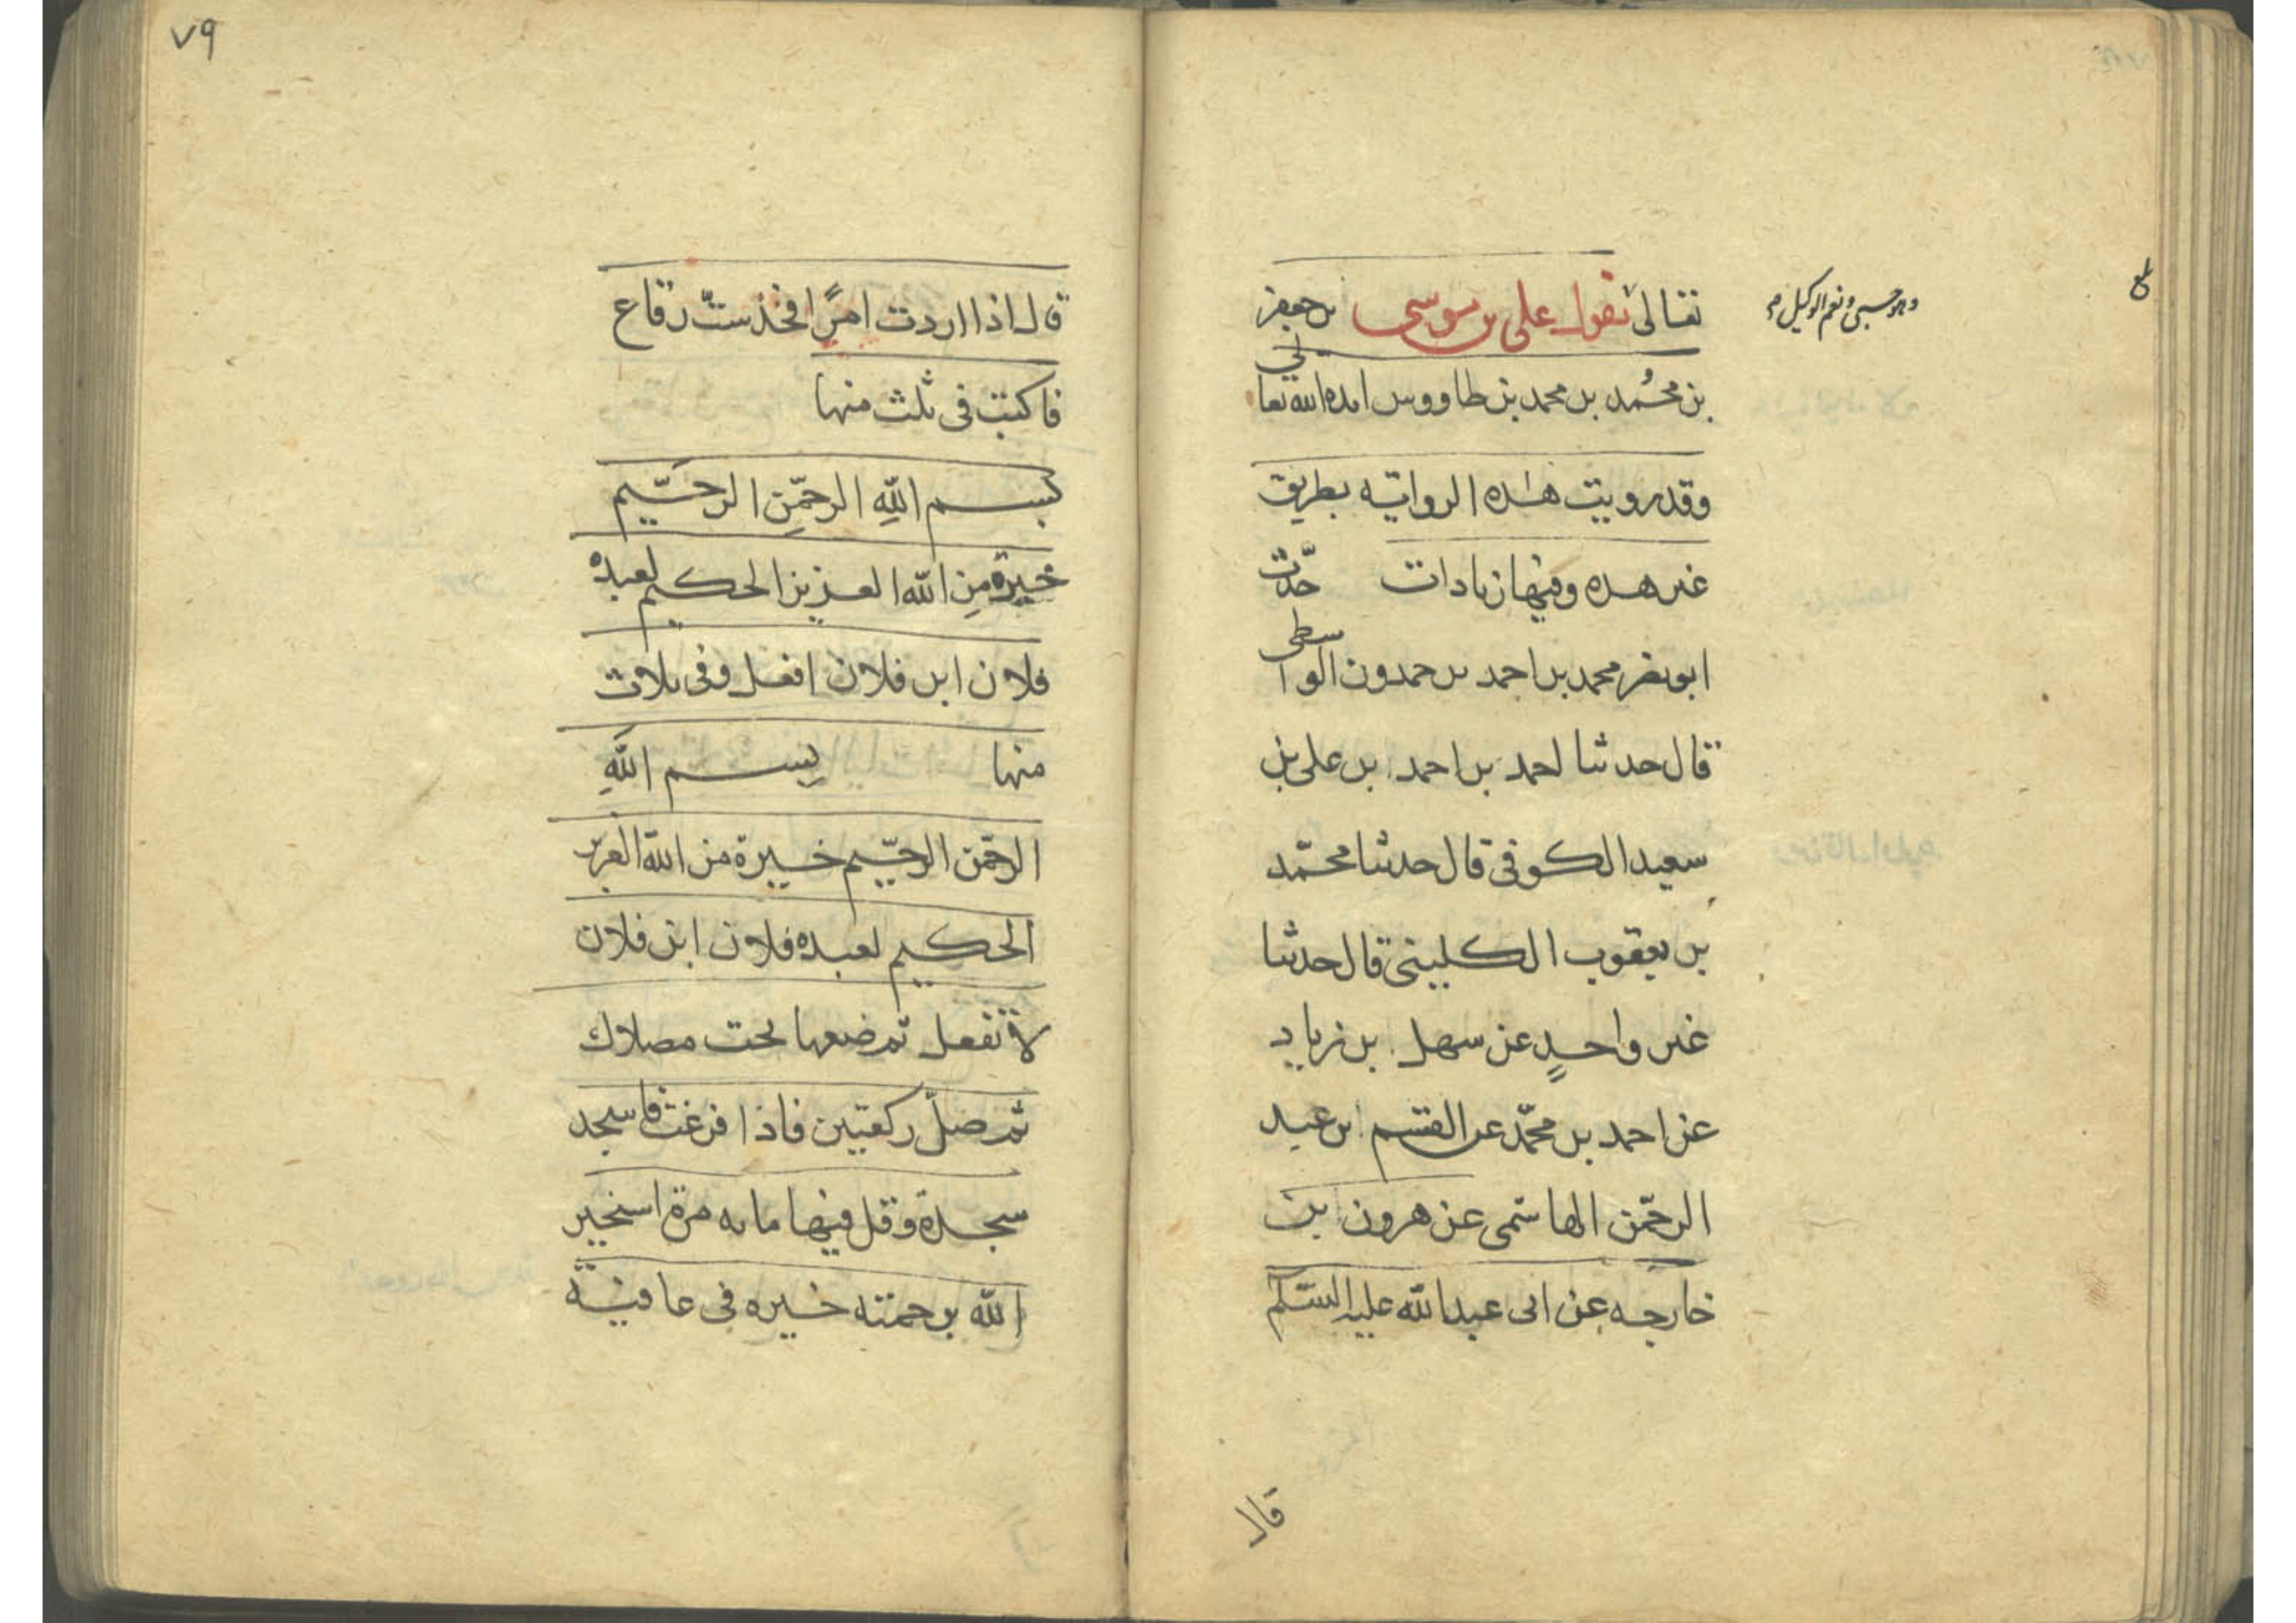 وهو حسبي ونعم الوكيل
تعالى يقول علي بن موسى بن جعفر
بن محمد بن محمد بن طاووس ايده الله تعالى
وقد رويت هذه الرواية بطريق
غير هذه وفيها زيادات حدث
ابو نصر محمد بن احمد بن حمدون الواسطى
قال حدثنا احمد بن احمد بن على بن
سعيد الكوفى قال حدثنا محمّد
بن يعقوب الكلينى قال حدثنا
غير واحدٍ عن سهل بن زياد
عن احمد بن محمّد عن القسم ابن عبد
الرحمٰن الهاشمى عن هرون بن
خارجه عن ابى عبدالله عليه السّلم
قال
٧٩
قال اذا اردت امرًا فخذ ستّ رقاع
فاكتب فى ثلث منها
بسم اللهِ الرحمٰنِ الرحيّم
خيرة مِن الله العزيز الحكيم لعبده
فلان ابن فلان افعل وفى ثلاث
منها بِسم اللهِ
الرحمٰن الرحيّم خيرة من الله العزيز
الحكيم لعبده فلان ابن فلان
لا تفعل ثم ضعها تحت مصلاك
ثم صلّ ركعتين فاذا فرغت فاسجد
سجدة وقل فيها مايه مرة استخير
الله برحمته خيره فى عافيه